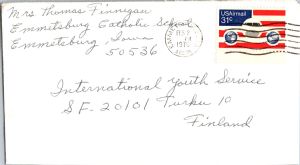 Mrs Thomas Finnegan
Emmetsburg Catholic School
Emmetsburg, Iowa
50536
USAirmail
31c
1976
International Youth Service
S.F. 20101 Turku 10
Finland